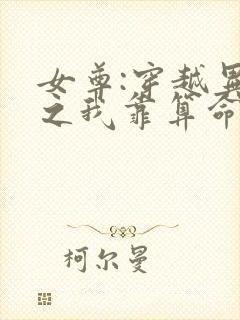 女尊:穿越
之我靠算命
柯尔曼